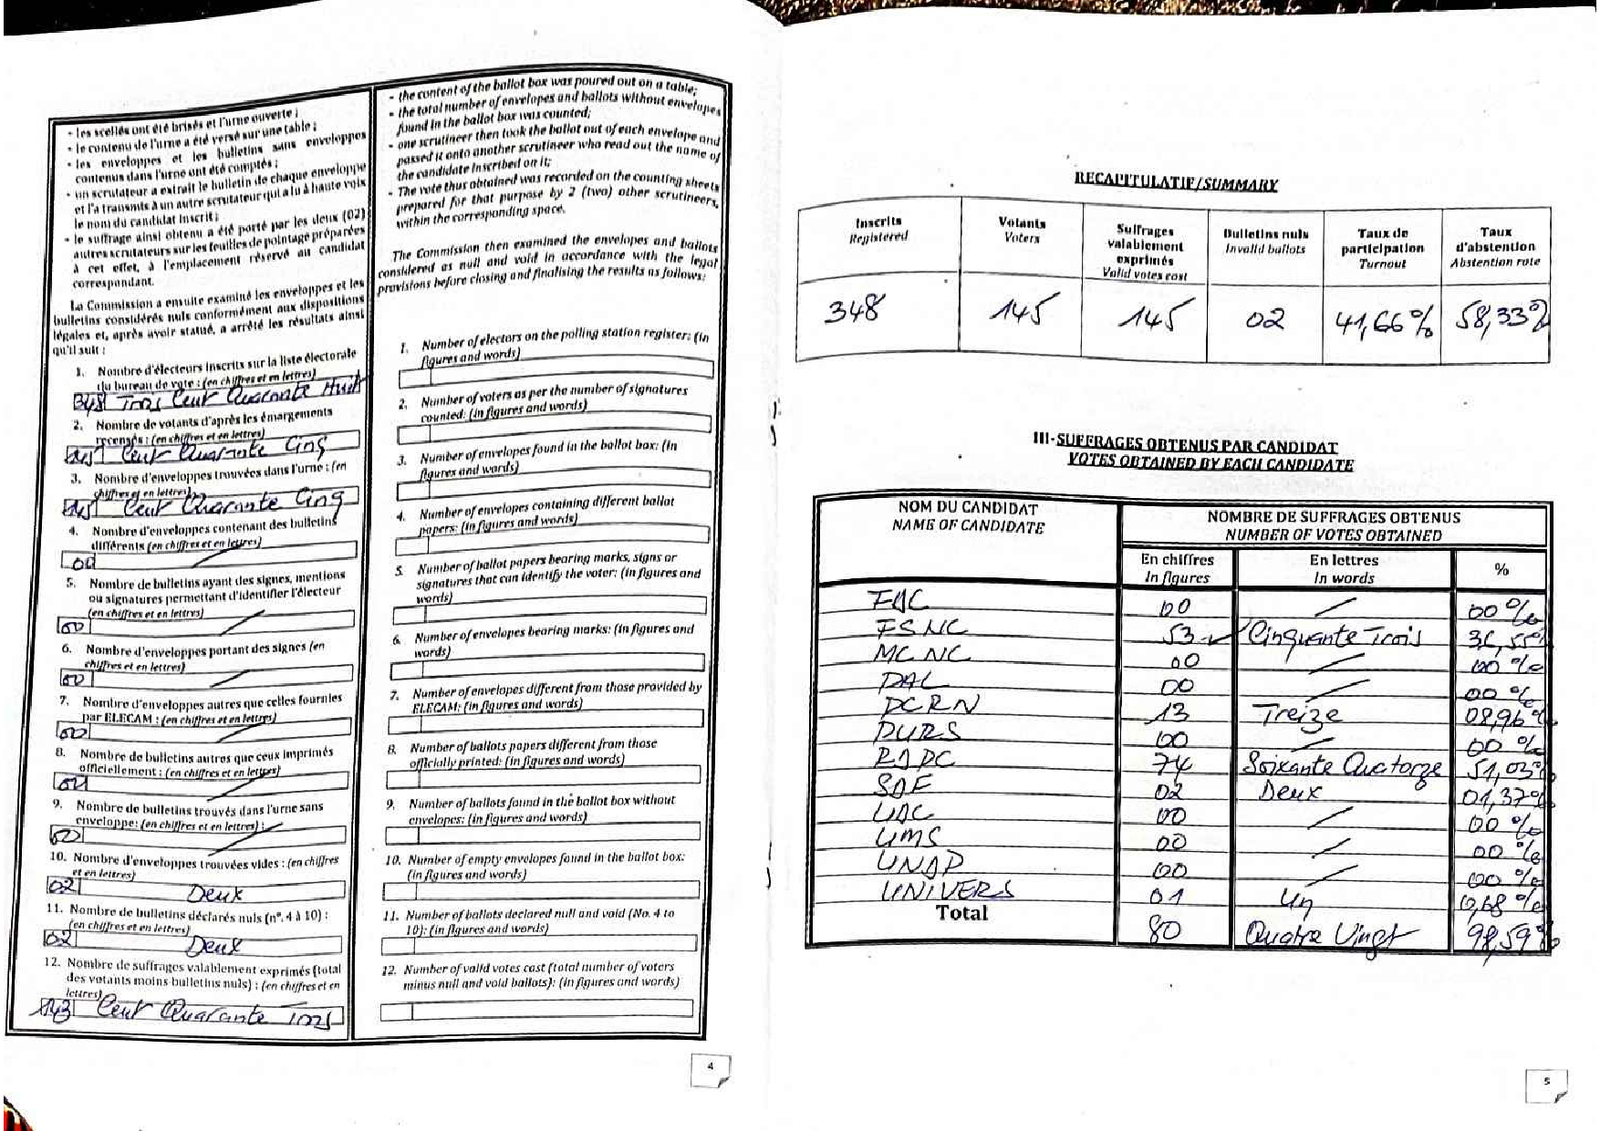 - les scellés ont été brisés et l'urne ouverte ;
- le contenu de l'urne a été versé sur une table ;
- les enveloppes et les bulletins sans enveloppes
contenus dans l'urne ont été comptés ;
- un scrutateur a extrait le bulletin de chaque enveloppe
et l'a transmis à un autre scrutateur qui a lu à haute voix
le nom du candidat inscrit ;
- le suffrage ainsi obtenu a été porté par les deux (02)
autres scrutateurs sur les feuilles de pointage préparées
à cet effet, à l'emplacement réservé au candidat
correspondant.
La Commission a ensuite examiné les enveloppes et les
bulletins considérés nuls conformément aux dispositions
légales et, après avoir statué, a arrêté les résultats ainsi
qu'il suit :
1. Nombre d'électeurs inscrits sur la liste électorale
du bureau de vote : (en chiffres et en lettres)
348 Trois Cent Quarante Huit
2. Nombre de votants d'après les émargements
recensés : (en chiffres et en lettres)
145 Cent Quarante Cinq
3. Nombre d'enveloppes trouvées dans l'urne : (en
chiffres et en lettres)
145 Cent Quarante Cinq
4. Nombre d'enveloppes contenant des bulletins
différents (en chiffres et en lettres)
00
5. Nombre de bulletins ayant des signes, mentions
ou signatures permettant d'identifier l'électeur
(en chiffres et en lettres)
00
6. Nombre d'enveloppes portant des signes (en
chiffres et en lettres)
00
7. Nombre d'enveloppes autres que celles fournies
par ELECAM : (en chiffres et en lettres)
00
8. Nombre de bulletins autres que ceux imprimés
officiellement : (en chiffres et en lettres)
9. Nombre de bulletins trouvés dans l'urne sans
enveloppe: (en chiffres et en lettres) :
00
10. Nombre d'enveloppes trouvées vides : (en chiffres
et en lettres)
02 Deux
11. Nombre de bulletins déclarés nuls (n°. 4 à 10) :
(en chiffres et en lettres)
02 Deux
12. Nombre de suffrages valablement exprimés (total
des votants moins bulletins nuls) : (en chiffres et en
lettres)
143 Cent Quarante Trois
- the content of the ballot box was poured out on a table;
- the total number of envelopes and ballots without envelopes
found in the ballot box was counted;
- one scrutineer then took the ballot out of each envelope and
passed it onto another scrutineer who read out the name of
the candidate inscribed on it;
- The vote thus obtained was recorded on the counting sheets
prepared for that purpose by 2 (two) other scrutineers,
within the corresponding space.
The Commission then examined the envelopes and ballots
considered as null and void in accordance with the legal
provisions before closing and finalising the results as follows:
1. Number of electors on the polling station register: (in
figures and words)
2. Number of voters as per the number of signatures
counted: (in figures and words)
3. Number of envelopes found in the ballot box: (in
figures and words)
4. Number of envelopes containing different ballot
papers: (in figures and words)
5. Number of ballot papers bearing marks, signs or
signatures that can identify the voter: (in figures and
words)
6. Number of envelopes bearing marks: (in figures and
words)
7. Number of envelopes different from those provided by
ELECAM: (in figures and words)
8. Number of ballots papers different from those
officially printed: (in figures and words)
9. Number of ballots found in the ballot box without
envelopes: (in figures and words)
10. Number of empty envelopes found in the ballot box:
(in figures and words)
11. Number of ballots declared null and void (No. 4 to
10): (in figures and words)
12. Number of valid votes cast (total number of voters
minus null and void ballots): (in figures and words)
4
RECAPITULATIF/SUMMARY
Inscrits Registered
Votants Voters
Suffrages valablement exprimés Valid votes cost
Bulletins nuls Invalid ballots
Taux de participation Turnout
Taux d'abstention Abstention rate
348 145 145 02 41,66% 58,33%
III-SUFFRAGES OBTENUS PAR CANDIDAT
VOTES OBTAINED BY EACH CANDIDATE
NOM DU CANDIDAT
NAME OF CANDIDATE
NOMBRE DE SUFFRAGES OBTENUS
NUMBER OF VOTES OBTAINED
En chiffres In figures
En lettres In words
%
FDC 00 00 %
FSNC 53 Cinquante Trois 36,55%
MCNC 00 00 %
PAL 00 00 %
PCRN 13 Treize 08,96%
PURS 00 00 %
RDPC 74 Soixante Quatorze 51,03%
SDF 02 Deux 01,37%
UDC 00 00 %
UMS 00 00 %
UNDP 00 00 %
UNIVERS 01 Un 0,68 %
Total 80 Quatre Vingt 98,59%
5